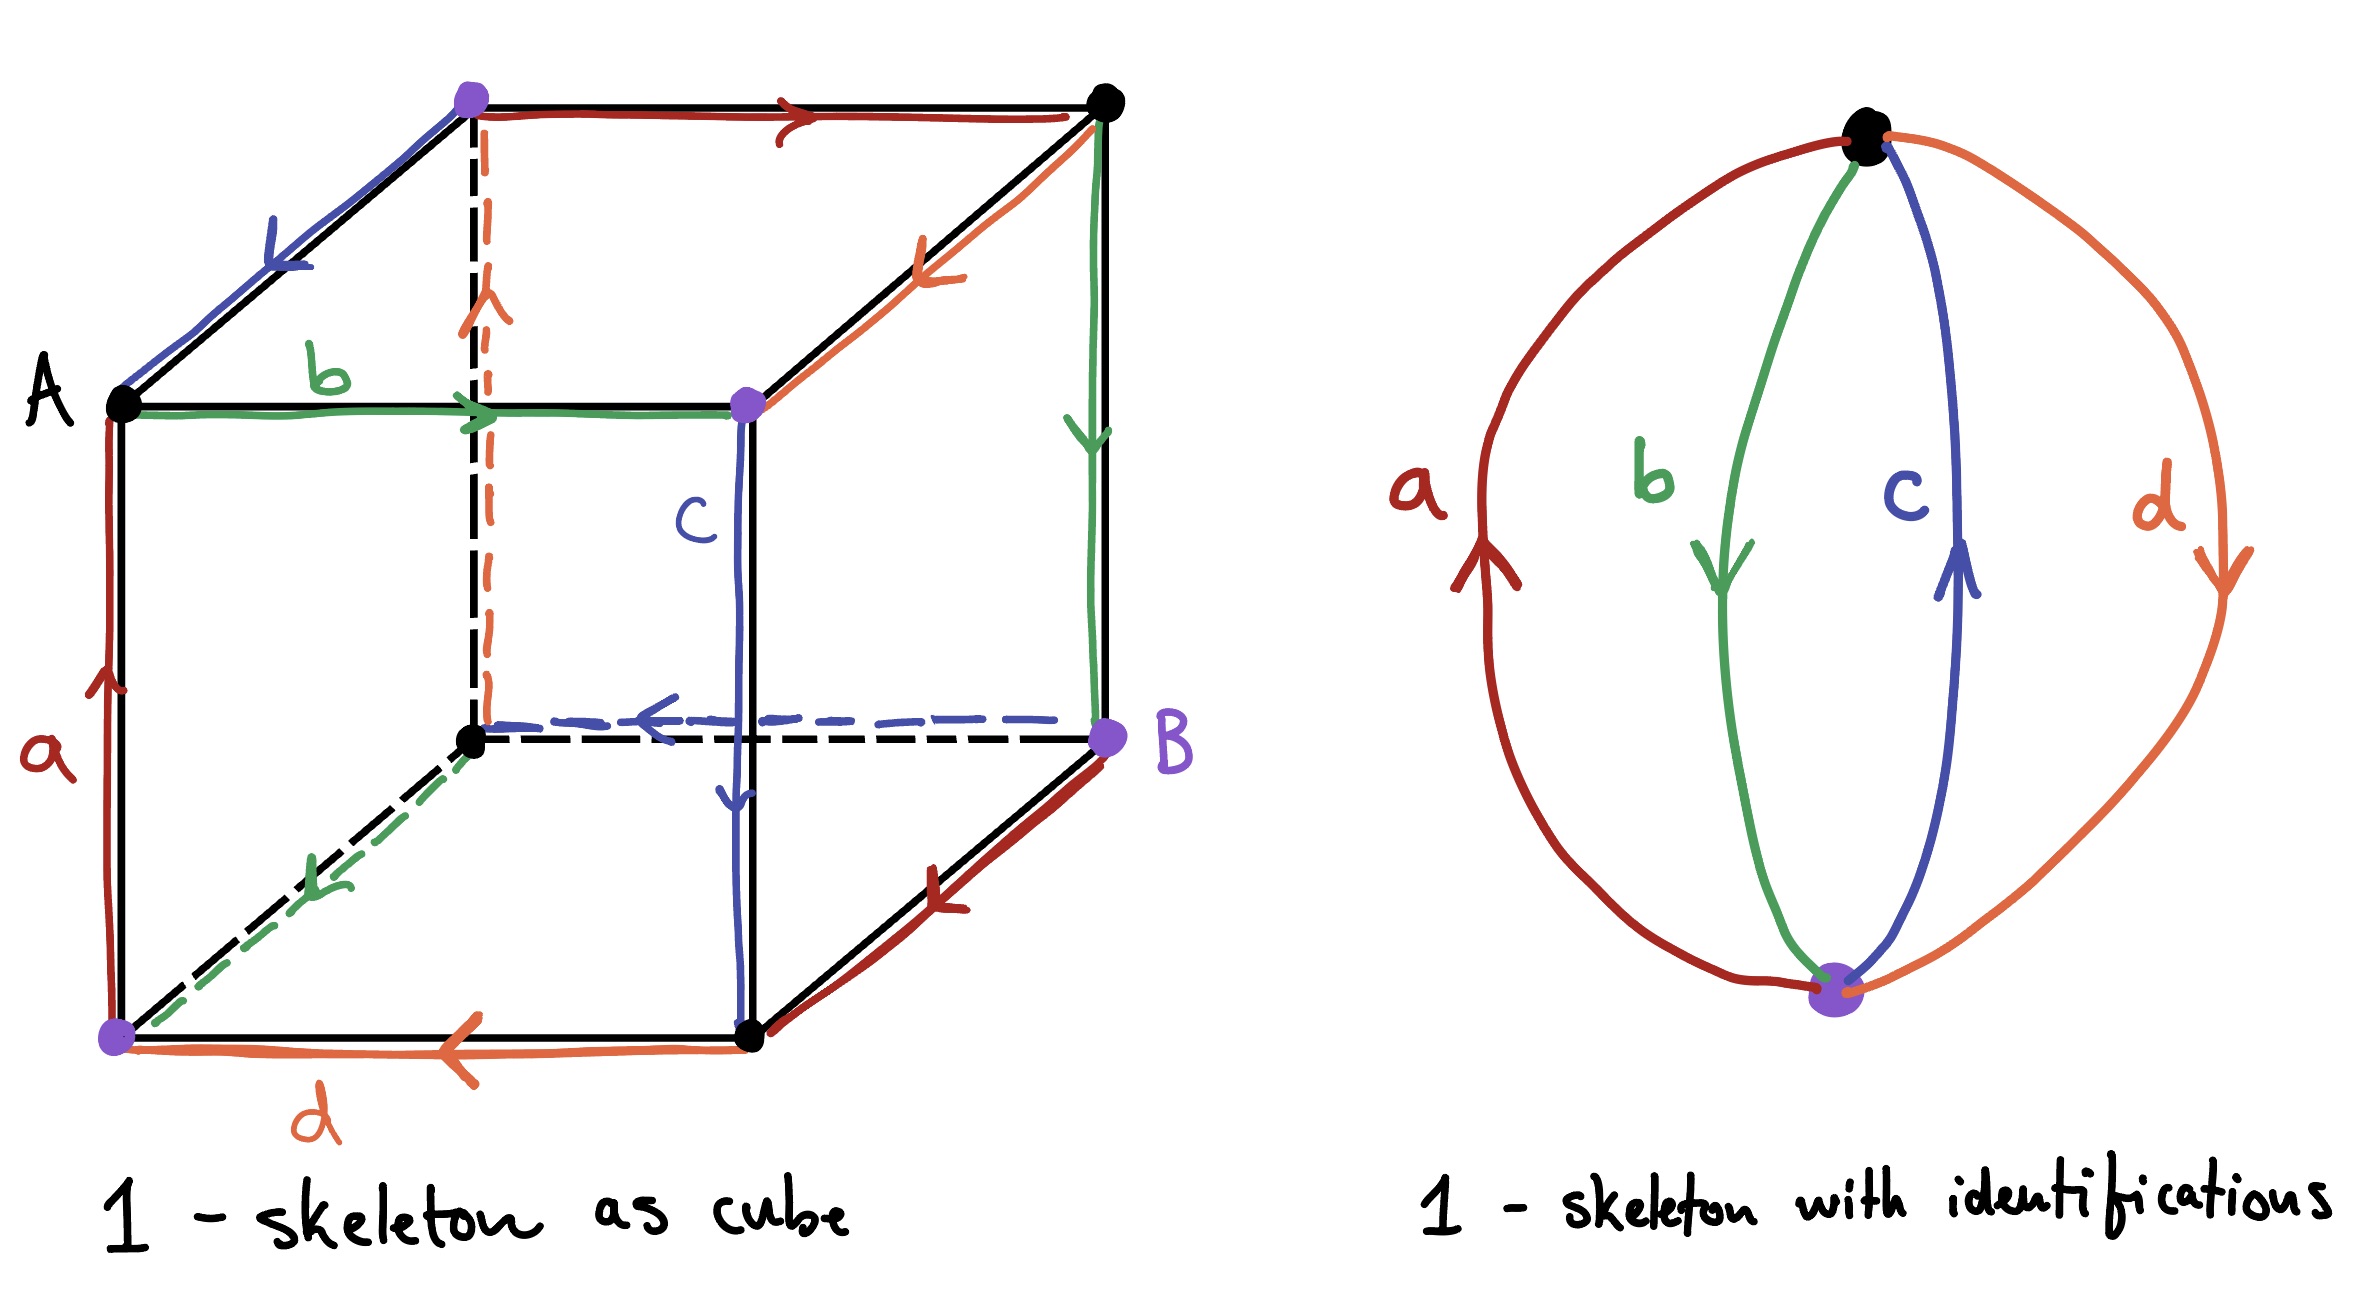 A
b
c
a
B
d
a
b
c
d
1 - skeleton as cube
1 - skeleton with identifications